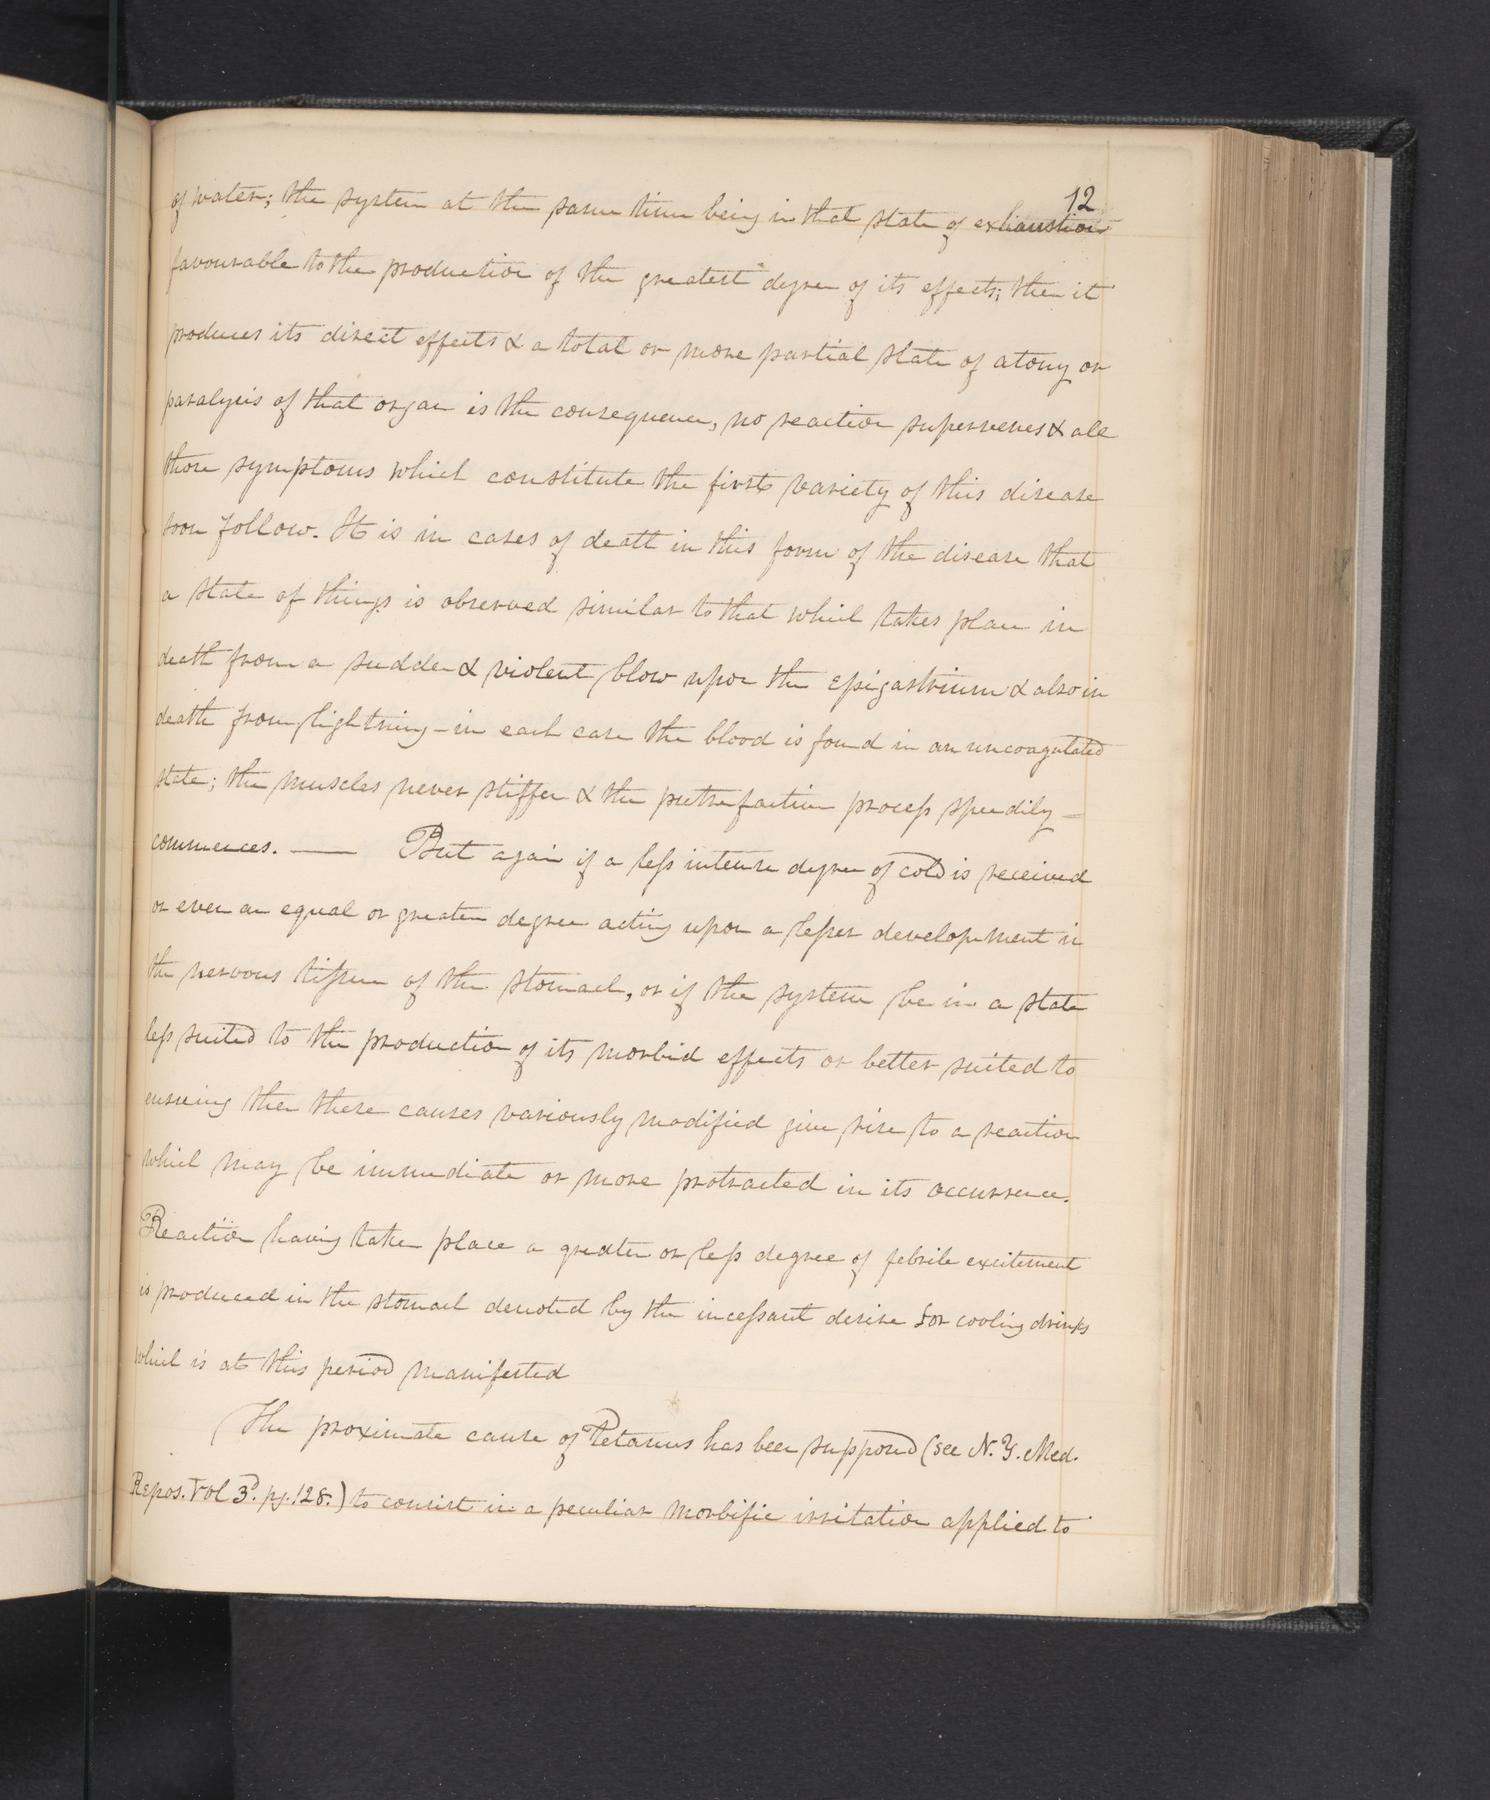 12
of water; the system at the same time being in that state of exhaustion
favourable to the production of the greatest degree of its effects; then it
produces its direct effects & a total or more partial state of atony or
paralysis of that organ is the consequence, no reaction supervenes & all
those symptoms which constitute the first variety of this disease
soon follow. It is in cases of death in this form of the disease that
a state of things is observed similar to that which takes place in
death from a sudden & violent blow upon the epigastrium & also in
death from lightning – in each case the blood is found in an uncoagulated
state; the muscles never stiffen & the putrefactive process speedily –
commences. —— But again if a less intense degree of cold is received
or even an equal or greater degree acting upon a lesser developement in
the nervous tissue of the stomach, or if the system be in a state
less suited to the production of its morbid effects or better suited to
ensuing then these causes variously modified give rise to a reaction
which may be immediate or more protracted in its occurrence.
Reaction having taken place a greater or less degree of febrile excitement
is produced in the stomach denoted by the incessant desire for cooling drinks
which is at this period manifested
The proximate cause of Tetanus has been supposed (see N. Y. Med.
Repos. Vol 3d. pg. 128.) to consist in a peculiar morbific irritation applied to